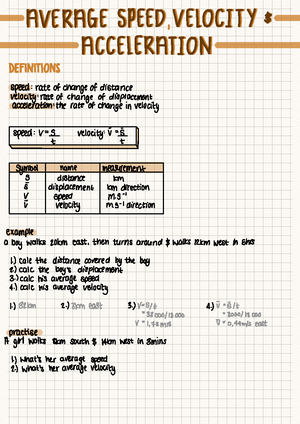 AVERAGE SPEED, VELOCITY &
ACCELERATION
DEFINITIONS
speed: rate of change of distance
velocity: rate of change of displacement
acceleration: the rate of change in velocity
speed: V = s/t velocity: v̄ = s̄/t
Symbol name measurement
S distance km
s̄ displacement km direction
V speed m.s⁻¹
v̄ velocity m.s⁻¹ direction
example
a boy walks 20km east, then turns around & walks 12km west in 5hrs
1.) calc the distance covered by the boy
2.) calc the boy's displacement
3.) calc his average speed
4.) calc his average velocity
1.) 32km 2.) 8km east 3.) V = s/t 4.) v̄ = s̄/t
= 32 000/18 000 = 8000/18 000
V = 1,78 m/s v̄ = 0,44m/s east
practise
A girl walks 8km south & 14km west in 3mins
1.) What's her average speed
2.) What's her average velocity